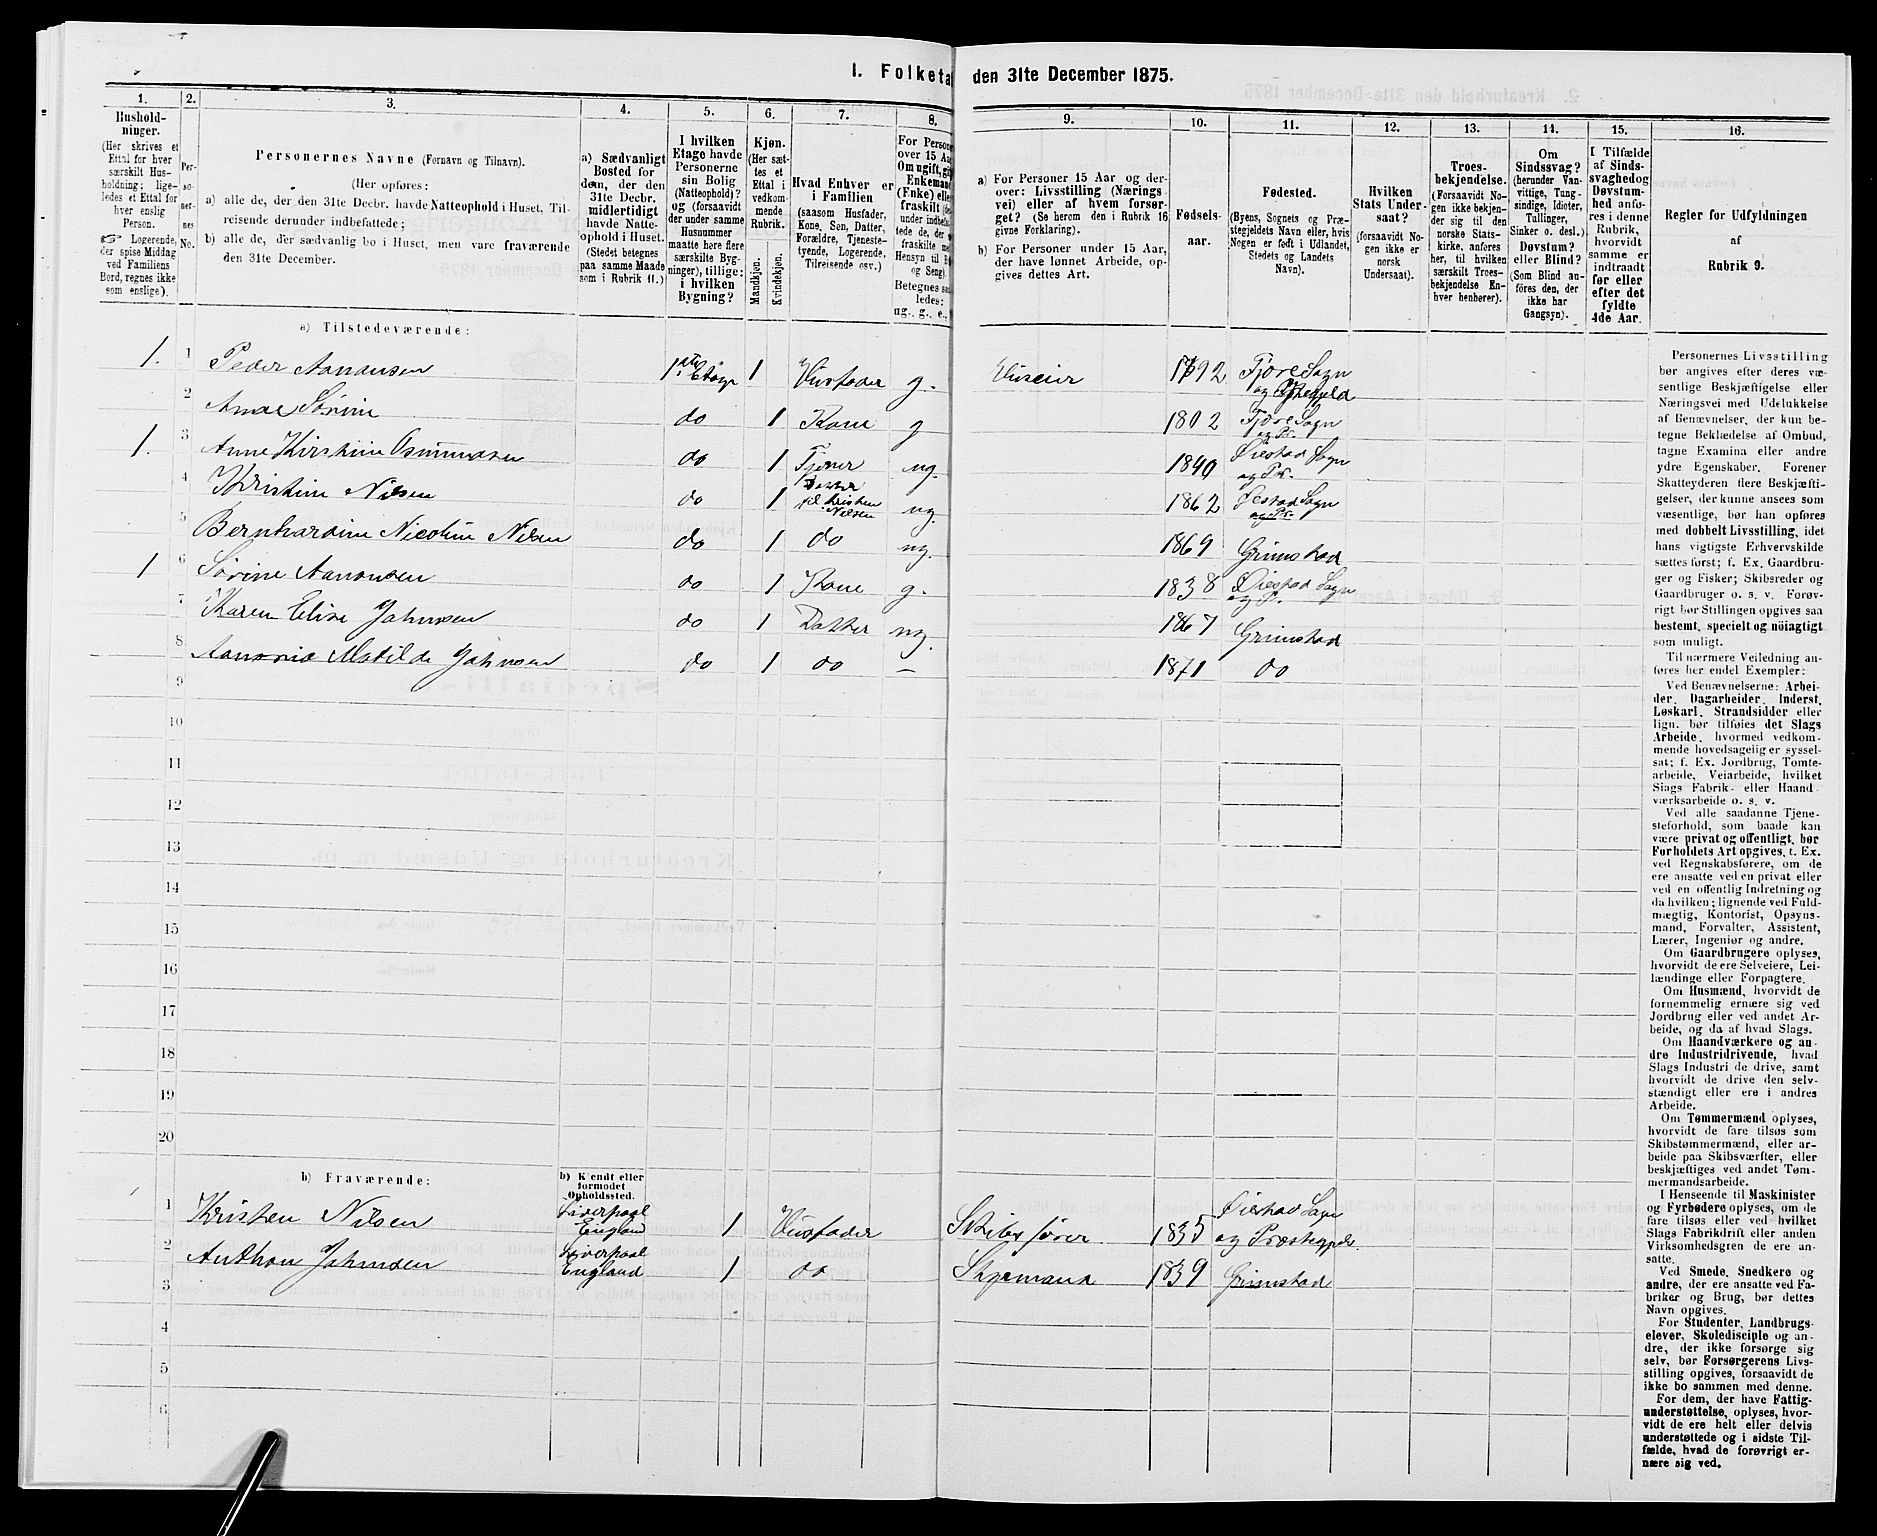 I. Folketa den 31te December 1875.
1. 2. 3. 4. 5. 6. 7. 8. 9. 10. 11. 12. 13. 14. 15. 16.
Hushold-
ninger.
(Her skrives et
Ettal for hver
særskilt Hus-
holdning; lige-
ledes et Ettal for
hver enslig
Person.
Logerende,
der spise Middag
ved Familiens
Bord, regnes ikke
som enslige).
Per-
so-
ner-
nes
No.
Personernes Navne (Fornavn og Tilnavn).
(Her opføres:
a) alle de, der den 31te Decbr. havde Natteophold i Huset, Til-
reisende derunder indbefattede;
b) alle de, der sædvanlig bo i Huset, men vare fraværende
den 31te December.
a) Sædvanligt
Bosted for
dem, der den
31te Decbr.
midlertidigt
havde Natte-
ophold i Huset.
(Stedet betegnes
paa samme Maade
som i Rubrik 11.)
I hvilken
Etage havde
Personerne
sin Bolig
(Natteophold)?
og (forsaavidt
der under samme
Husnummer
maatte høre flere
særskilte Byg-
ninger), tillige:
i hvilken
Bygning?
Kjøn.
(Her sæt-
tes et
Ettal i
vedkom-
mende
Rubrik.
Mandkjøn.
Kvindekjøn.
Hvad Enhver er
i Familien
(saasom Husfader,
Kone, Søn, Datter,
Forældre, Tjeneste-
tyende, Logerende,
Tilreisende osv.)
For Persone
over 15 Aa
Om ugift, gi
Enkeman
(Enke) elle
fraskilt (de
under indbefa
tede de, der e
fraskilte me
Hensyn til B
og Seng).
Betegnes saa
ledes:
ug., g., e.,
a) For Personer 15 Aar og der-
over: Livsstilling (Nærings
vei) eller af hvem forsør-
get? (Se herom den i Rubrik 16
givne Forklaring).
b) For Personer under 15 Aar,
der have lønnet Arbeide, op-
gives dettes Art.
Fødsels-
aar.
Fødested.
(Byens, Sognets og Præ-
stegjeldets Navn eller, hvis
Nogen er født i Udlandet,
Stedets og Landets
Navn).
Hvilken
Stats Under-
saat?
(forsaavidt No-
gen ikke er
norsk
Undersaat).
Troes-
bekjendelse.
(Forsaavidt No-
gen ikke bekjen-
der sig til den
norske Stats-
kirke, anføres
her, til hvilken
særskilt Troes-
bekjendelse En-
hver henhører).
Om
Sindssvag?
(herunder Van-
vittige, Tung-
sindige, Idioter,
Tullinger,
Sinker o. desl.)
Døvstum?
eller Blind?
(Som Blind an-
føres den, der
ikke har
Gangsyn).
I Tilfælde
af Sinds-
svaghed og
Døvstum-
hed anfø-
res i denne
Rubrik,
hvorvidt
samme er
indtraadt
før eller
efter det
fyldte
4de Aar.
Regler for Udfyldningen
af
Rubrik 9.
a) Tilstedeværende:
1. 1 Peder Aanonsen 1ste Etage 1 Husfader g. Huseier 1792 Fjære Sogn
2 Anne Sørine do 1 Kone g 1802 Fjære Sogn
og Pr.
1. 3 Anne Kirstine Osmundsen do 1 ug. 1840 Øiestad Sogn
og Pr.
4 Kristine Nilsen do 1 Datter
Kristen
Nilsen ug. 1862 Øiestad Sogn
og Pr.
5 Bernhardine Nicoline Nilsen do 1 do ug. 1869 Grimstad
1 6 Sørine Aanonsen do 1 Kone g. 1838 Øiestad Sogn
7 Karen Elise Johnsen do 1 Datter ug. 1867 Grimstad
8 Aanonia Matilde Johnsen do 1 do — 1871 do
9
10
11
12
13
14
15
16
17
18
19
20
b) Fraværende: b) Kjendt eller
formodet
Opholdssted.
1 Kristen Nilsen Liverpool
England 1 Husfader Skibsfører 1835 Øiestad Sogn
og Præstegjeld.
2 Anthon Johnsen Liverpool
England 1 do Styrmand 1839 Grimstad
3
4
5
6
Personernes Livsstilling
bør angives efter deres væ-
sentlige Beskjæftigelse eller
Næringsvei med Udelukkelse
af Benævnelser, der kun be-
tegne Beklædelse af Ombud,
tagne Examina eller andre
ydre Egenskaber. Forener
Skatteyderen flere Beskjæfti-
gelser, der kunne ansees som
væsentlige, bør han opføres
med dobbelt Livsstilling, idet
hans vigtigste Erhvervskilde
sættes først; f. Ex. Gaardbru-
ger og Fisker; Skibsreder og
Gaardbruger o. s. v. Forøv-
rigt bør Stillingen opgives saa
bestemt, specielt og nøiagtigt
som muligt.
Til nærmere Veiledning an-
føres her endel Exempler:
Ved Benævnelserne: Arbei-
der, Dagarbeider, Inderst,
Løskarl, Strandsidder eller
lign. bør tilføies det Slags
Arbeide, hvormed vedkom-
mende hovedsagelig er syssel-
sat; f. Ex. Jordbrug, Tomte-
arbeide, Veiarbeide, hvilket
Slags Fabrik- eller Haand-
værksarbeide o. s. v.
Ved alle saadanne Tjene-
steforhold, som baade kan
være privat og offentligt, bør
Forholdets Art opgives, t. Ex.
ved Regnskabsførere, om de
ere ansatte ved en privat eller
ved en offentlig Indretning og
da hvilken; lignende ved Fuld-
mægtig, Kontorist, Opsyns-
mand, Forvalter, Assistent,
Lærer, Ingeniør og andre.
Om Gaardbrugere oplyses,
hvorvidt de ere Selveiere, Lei-
lændinge eller Forpagtere.
Om Husmænd, hvorvidt de
fornemmelig ernære sig ved
Jordbrug eller ved andet Ar-
beide, og da af hvad Slags.
Om Haandværkere og an-
dre Industridrivende, hvad
Slags Industri de drive, samt
hvorvidt de drive den selv-
stændigt eller ere i andres
Arbeide.
Om Tømmermænd oplyses,
hvorvidt de fare tilsøs som
Skibstømmermænd, eller ar-
beide paa Skibsværfter, eller
beskjæftiges ved andet Tøm-
mermandsarbeide.
I Henseende til Maskinister
og Fyrbødere oplyses, om de
fare tilsøs eller ved hvilket
Slags Fabrikdrift eller anden
Virksomhedsgren de ere an-
satte.
Ved Smede, Snedkere og
andre, der ere ansatte ved Fa-
briker og Brug, bør dettes
Navn opgives.
For Studenter, Landbrugs-
elever, Skoledisciple og an-
dre, der ikke forsørge sig
selv, bør Forsørgerens Livs-
stilling opgives, forsaavidt de
ikke bo sammen med denne.
For dem, der have Fattig-
understøttelse, oplyses, hvor-
vidt de ere helt eller delvis
understøttede og i sidste Til-
fælde, hvad de forøvrigt er-
nære sig ved.